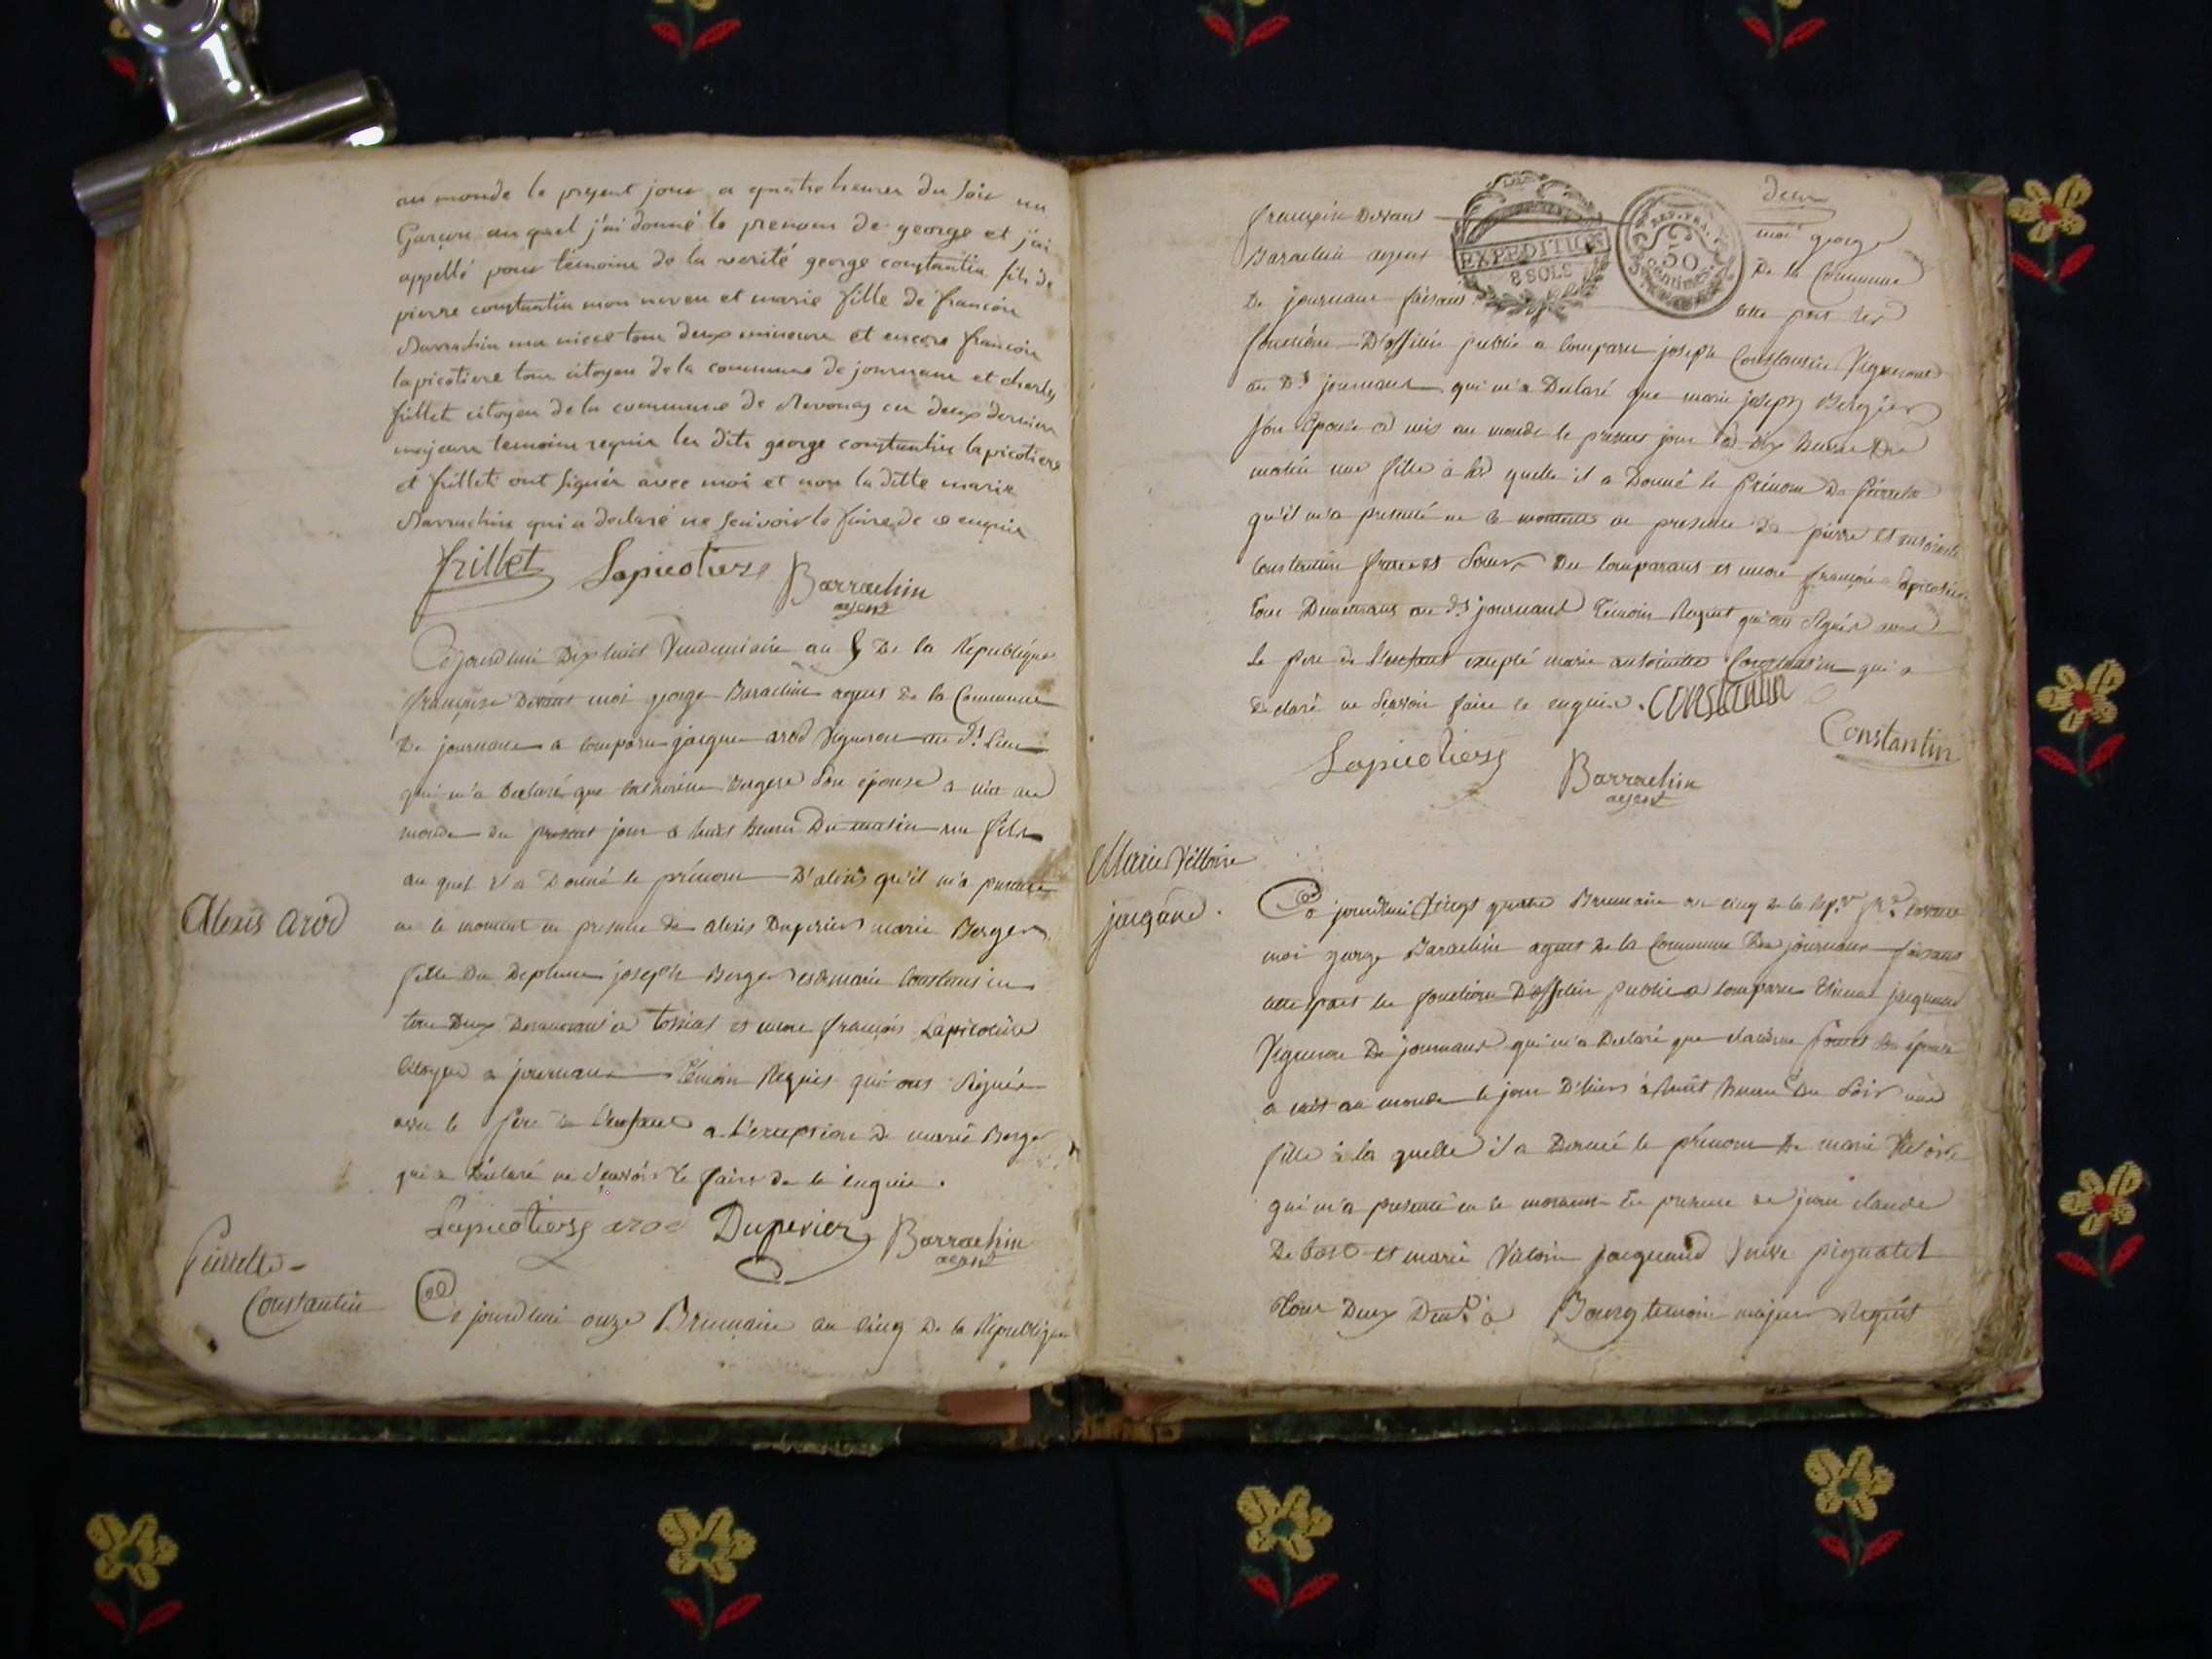 au monde le present jour a quatre heures du soir un
Garçon au quel j'ai donné le prenom de george et j'ai
appellé pour temoins de la verité george constantin fils de
pierre constantin mon neveu et marie fille de francois
Barrachin ma niece tous deux mineurs et encore francois
lapicotiere tous citoyen de la commune de journans et charles
frillet citoyen de la commune de Revonas ces deux derniers
majeurs temoins requis les dits george constantin lapicotiere
et frillet ont signés avec moi et non la ditte marie
Barrachin qui a declaré ne seavoir le faire de ce enquis
frillet Lapicotiere Barrachin
agent
Ce jourdhui Dix huit Vendemiaire an 5 De la République
françaisе Devant moi george Barachin agent De la Commune
De journans a comparu jacque arod Vigneron au dt Lieu
qui m'a Declaré que Catherine Bergere Son épouse a mis au
monde du present jour a huit heures Du matin un fils
au quel il a Donné le prénom D'alexis qu'il m'a presenté
en le moment en presence de alexis Duperier marie Berger
fille De Dephunt joseph Berger et de marie Constantin
tous Deux Demeurant a tossiat et encore françois Lapicotiere
Citoyen a journans Témoin Requis qui ont Signés
avec le Pere de l'enfant a l'exception de marie Berger
qui a Déclaré ne sçavoir le faire de ce enquise.
Lapicotiere arod Duperier Barrachin
agent
Alexis arod
Pierrette
Constantin
Ce jourdhui onze Brumaire an cinq De la République
deux
EXPÉDITION
REP. FRA.
50
centimes
française Devant moi george
Barachin agent De la Commune
De journans faisant cette part les
fonctions D'officier public a comparu joseph Constantin Vigneron
au dt journans qui m'a Declaré que marie joseph Bergier
Son Epouse a mis au monde le present jour a Dix heures Du
matin une fille à la quelle il a Donné le Prénom De Pierrette
qu'il m'a presenté en le moment en presence De pierre et antoinette
Constantin freres et Soeur Du Comparant et encore françois Lapicotiere
tous Demeurans au dt journans Témoin Requis qui ont Signés avec
Le Pere de L'enfant excepté marie antoinette Constantin qui a
Declaré ne Sçavoir faire de enquise. constantin
Constantin
Lapicotiere Barrachin
agent
Marie Victoire
jacquand.
Ce jourdhui Vingt quatre Brumaire an cinq de la Rep. fr. Devant
moi george Barachin agent De la Commune De journans faisant
cette part les fonctions D'officier public a comparu Etienne jacquand
Vigneron De journans qui m'a Declaré que claudine Son épouse
a mis au monde le jour D'hiers à huit heures Du Soir une
fille à la quelle il a Donné le prénom De marie Victoire
qui m'a presenté en le moment En presence de jean claude
De bost et marie Victoire jacquand Veuve pignatel
Tous Deux Demt à Bourg temoins majeur Requis